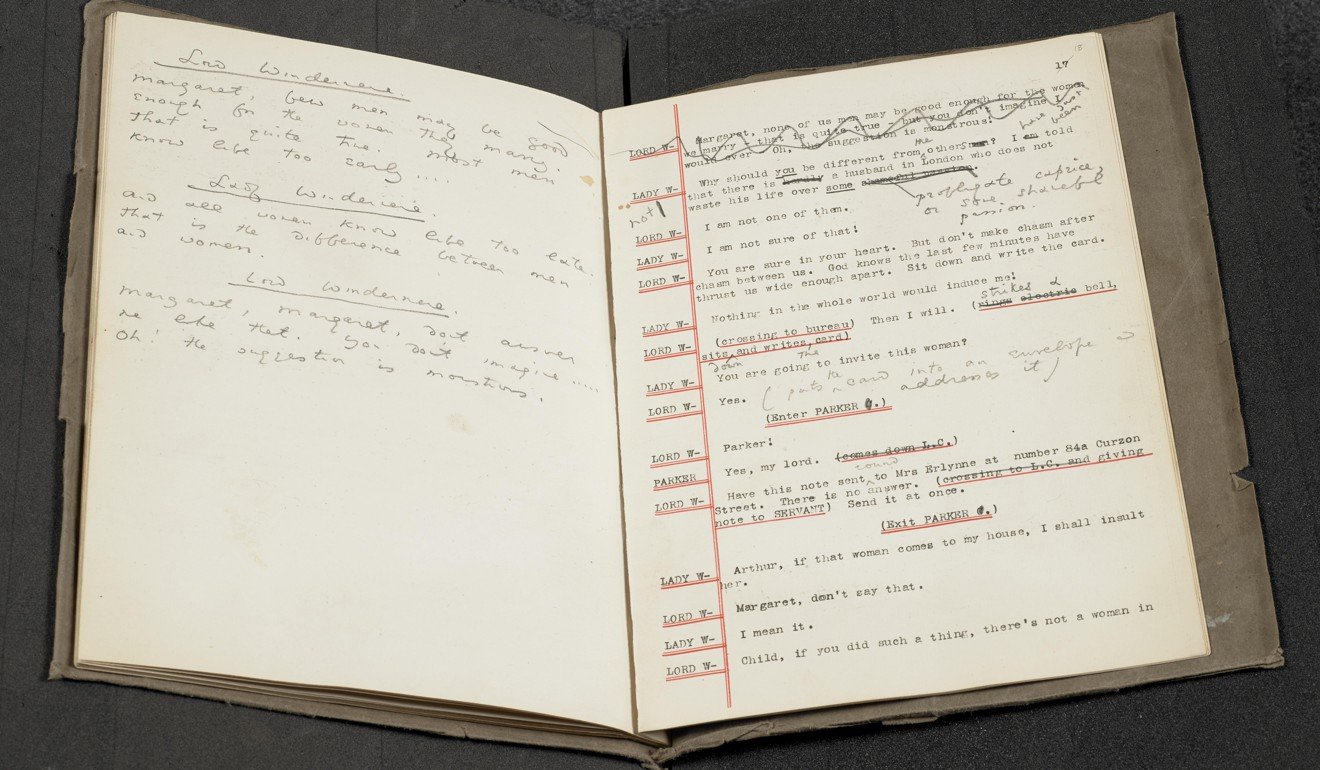 Lord Windermere.
Margaret, few men may be good
enough for the women they marry.
that is quite true. most men
know life too early ....
Lady Windermere.
and all women know life too late.
that is the difference between men
and women.
Lord Windermere.
Margaret, Margaret, don't answer
me like that. You don't imagine .....
Oh! the suggestion is monstrous.
17
LORD W- Margaret, none of us men may be good enough for the women
we marry - that is quite true - but you don't imagine I
would ever - Oh, the suggestion is monstrous!
the just
have been
LADY W- Why should you be different from others men? I am told
that there is hardly a husband in London who does not
not
waste his life over some shameful passion.
profligate caprice,
or some shameful
passion.
LORD W- I am not one of them.
LADY W- I am not sure of that!
LORD W- You are sure in your heart. But don't make chasm after
chasm between us. God knows the last few minutes have
thrust us wide enough apart. Sit down and write the card.
LADY W- Nothing in the whole world would induce me!
strikes a
LORD W- (crossing to bureau) Then I will. (rings electric bell,
sits and writes card)
down the
LADY W- You are going to invite this woman?
LORD W- Yes. (puts the card into an envelope &
addresses it)
(Enter PARKER .)
LORD W- Parker!
PARKER Yes, my lord. (comes down L.C.)
round
LORD W- Have this note sent to Mrs Erlynne at number 84a Curzon
Street. There is no answer. (crossing to L.C. and giving
note to SERVANT) Send it at once.
(Exit PARKER .)
LADY W- Arthur, if that woman comes to my house, I shall insult
her.
LORD W- Margaret, don't say that.
LADY W- I mean it.
LORD W- Child, if you did such a thing, there's not a woman in